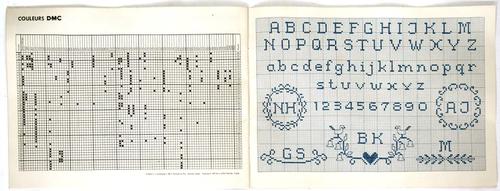 COULEURS DMC
ABCDEFGHIJKLM
NOPQRSTUVWXYZ
abcdefghijklmnopqr
stuvwxyz
NH
1234567890
AJ
GS
BK
M